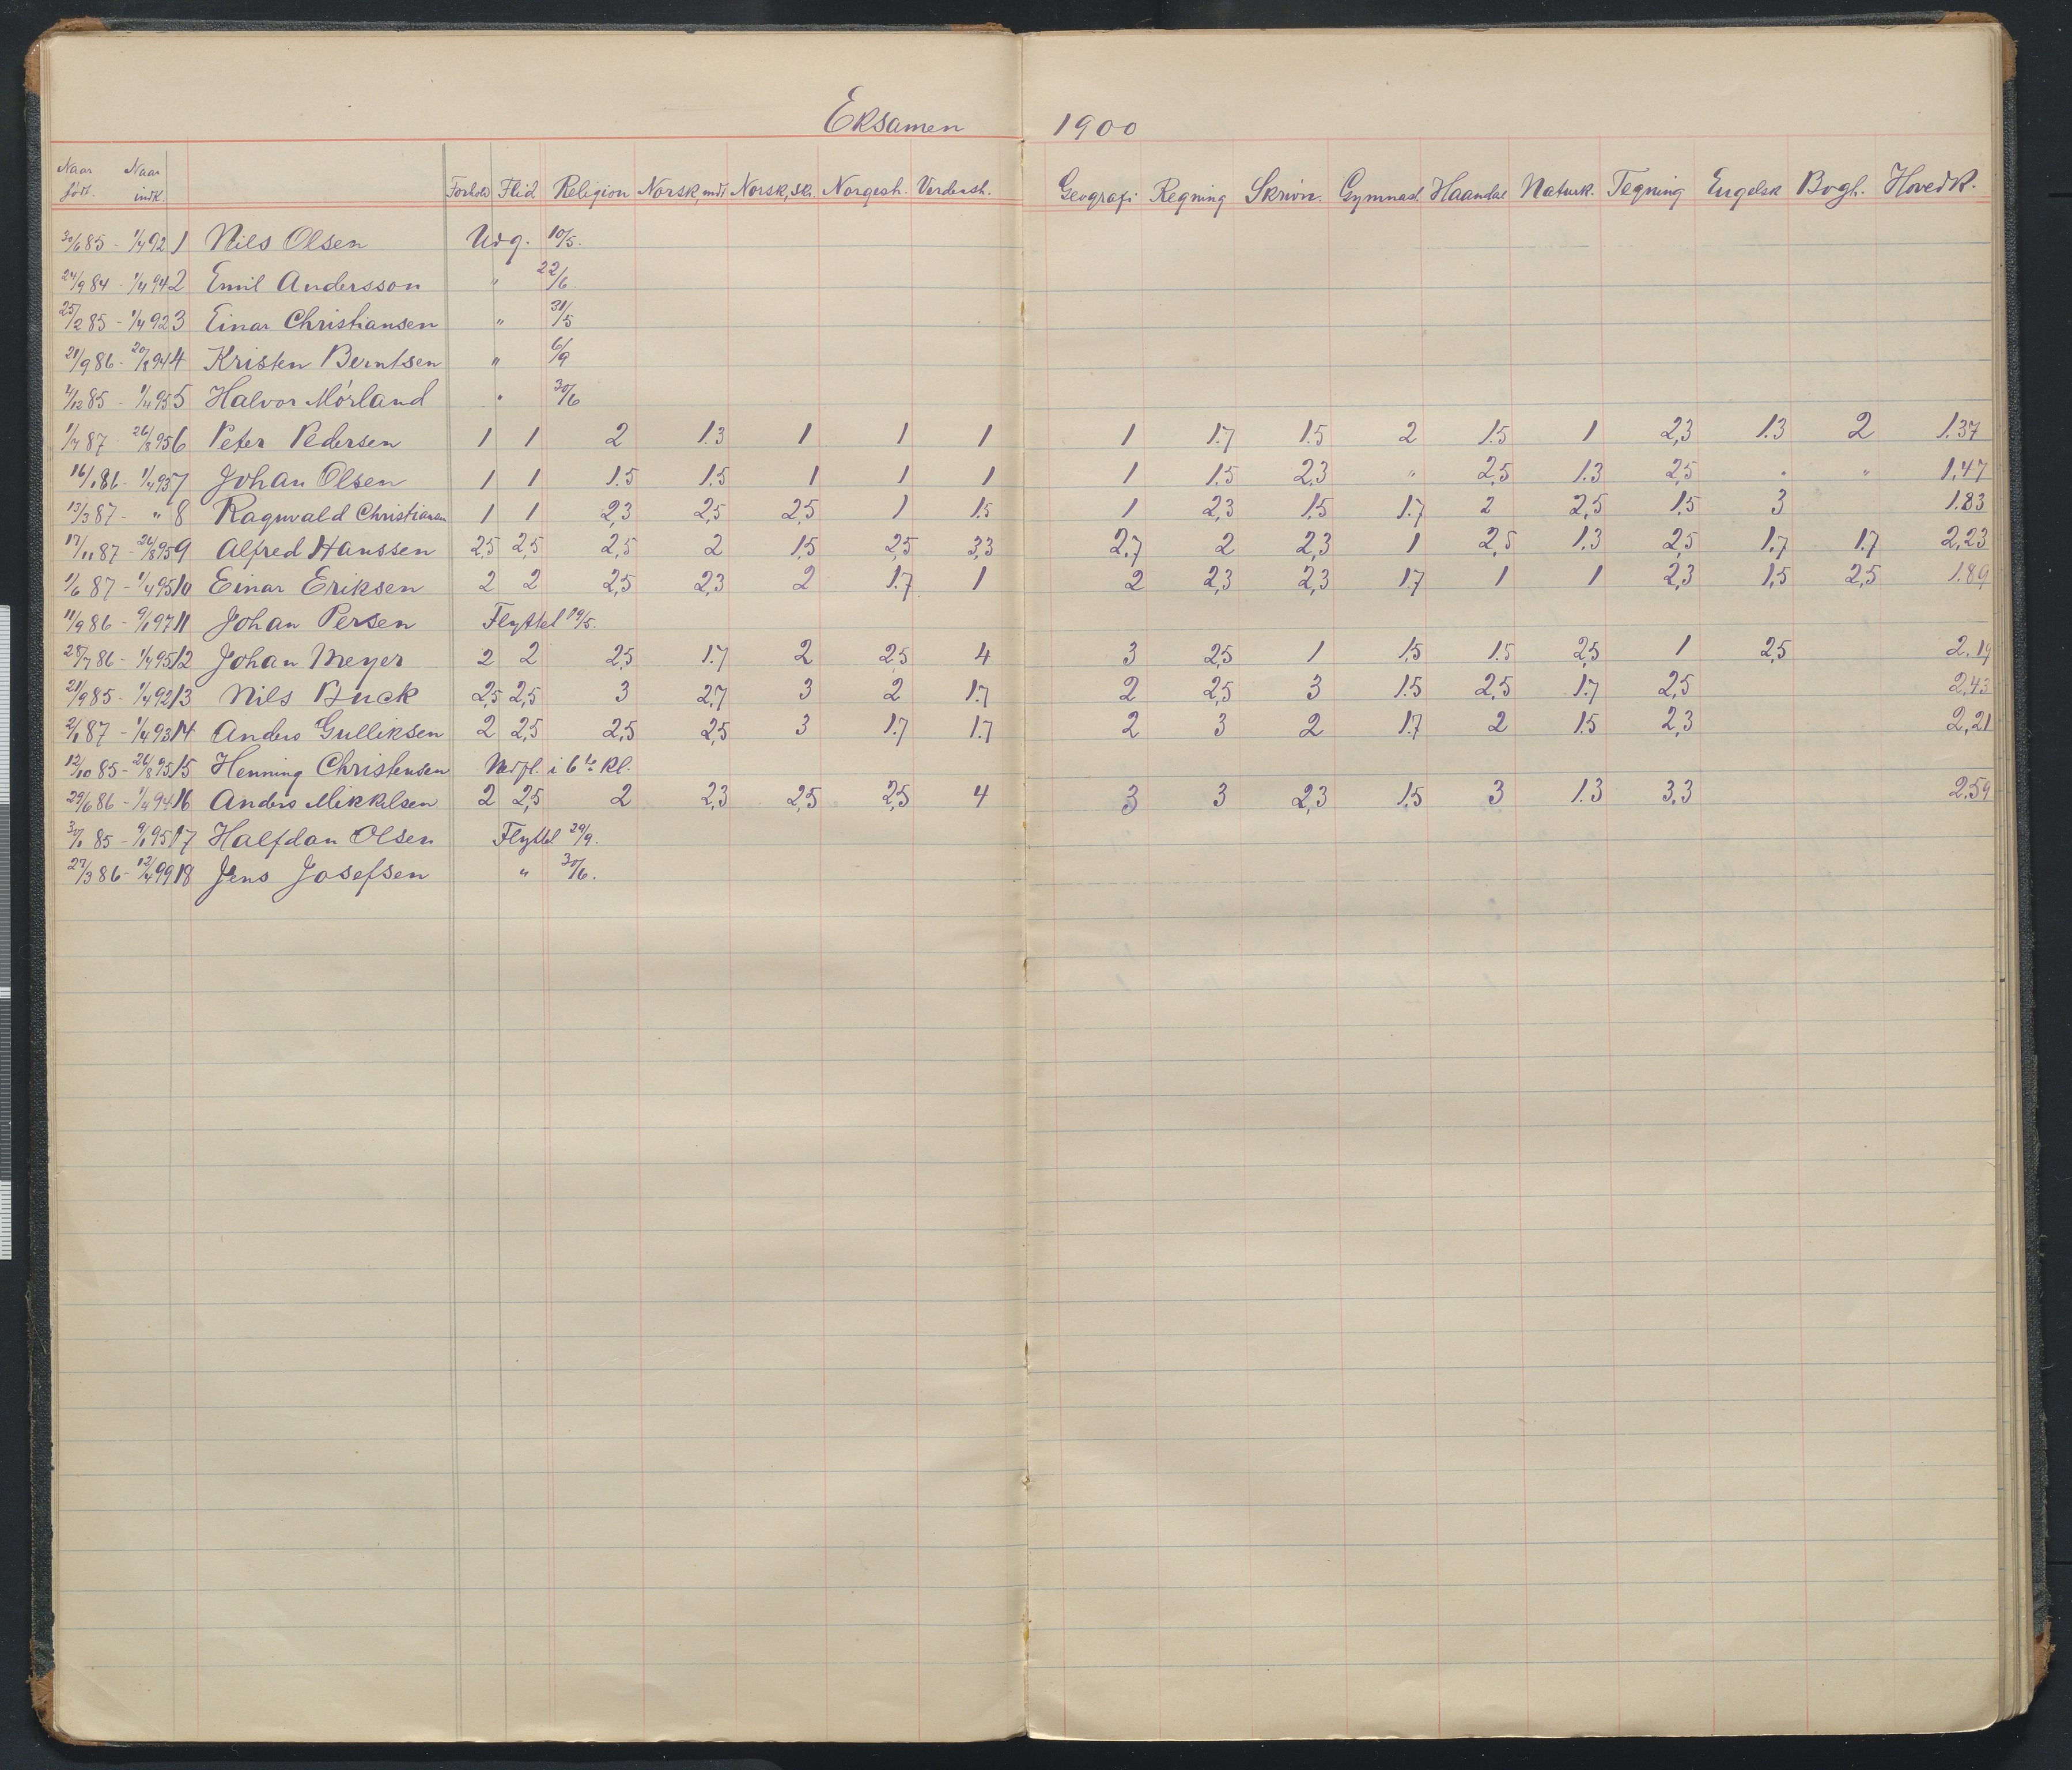 Eksamen 1900
Naar født. Naar indk. Forhold Flid Religion Norsk, mdt Norsk, skr. Norgesh. Verdensh. Geografi Regning Skrivn. Gymnast. Haandal Naturk. Tegning Engelsk Bogh. Hovedk.
30/6 85 - 1/4 92 1 Nils Olsen Udg. 10/5.
24/9 84 - 1/4 94 2 Emil Andersson " 22/6.
25/2 85 - 1/4 92 3 Einar Christiansen " 31/5
21/9 86 - 20/8 94 4 Kristen Berntsen " 6/9
1/12 85 - 1/4 95 5 Halvor Mørland " 30/6
1/7 87 - 26/8 95 6 Peter Pedersen 1 1 2 1.3 1 1 1 1 1.7 1.5 2 1.5 1 2,3 1.3 2 1.37
16/1 86 - 1/4 95 7 Johan Olsen 1 1 1.5 1.5 1 1 1 1 1.5 2,3 " 2,5 1.3 2,5 " " 1,47
13/3 87 - " 8 Ragnvald Christiansen 1 1 2,3 2,5 2,5 1 1.5 1 2,3 1.5 1.7 2 2,5 1.5 3 1.83
17/11 87 - 26/8 95 9 Alfred Hanssen 2,5 2,5 2,5 2 1.5 2,5 3,3 2.7 2 2,3 1 2,5 1.3 2,5 1.7 1.7 2,23
1/6 87 - 1/4 95 10 Einar Eriksen 2 2 2,5 2,3 2 1.7 1 2 2,3 2,3 1.7 1 1 2,3 1,5 2,5 1.89
11/9 86 - 9/1 97 11 Johan Persen Flyttet 19/5.
28/7 86 - 1/4 95 12 Johan Meyer 2 2 2,5 1.7 2 2,5 4 3 2,5 1 1,5 1.5 2,5 1 2,5 2.19
21/9 85 - 1/4 92 13 Nils Buck 2,5 2,5 3 2,7 3 2 1.7 2 2,5 3 1.5 2,5 1.7 2,5 2,43
2/1 87 - 1/4 93 14 Anders Gulliksen 2 2,5 2,5 2,5 3 1.7 1.7 2 3 2 1.7 2 1.5 2,3 2,21
12/10 85 - 26/8 95 15 Henning Christensen Nedfl. i 6te Kl.
29/6 86 - 1/4 94 16 Anders Mikkelsen 2 2,5 2 2,3 2,5 2,5 4 3 3 2,3 1.5 3 1.3 3.3 2.59
30/1 85 - 9/1 95 17 Halfdan Olsen Flyttet 29/9.
27/3 86 - 12/4 99 18 Jens Josefsen " 30/6.